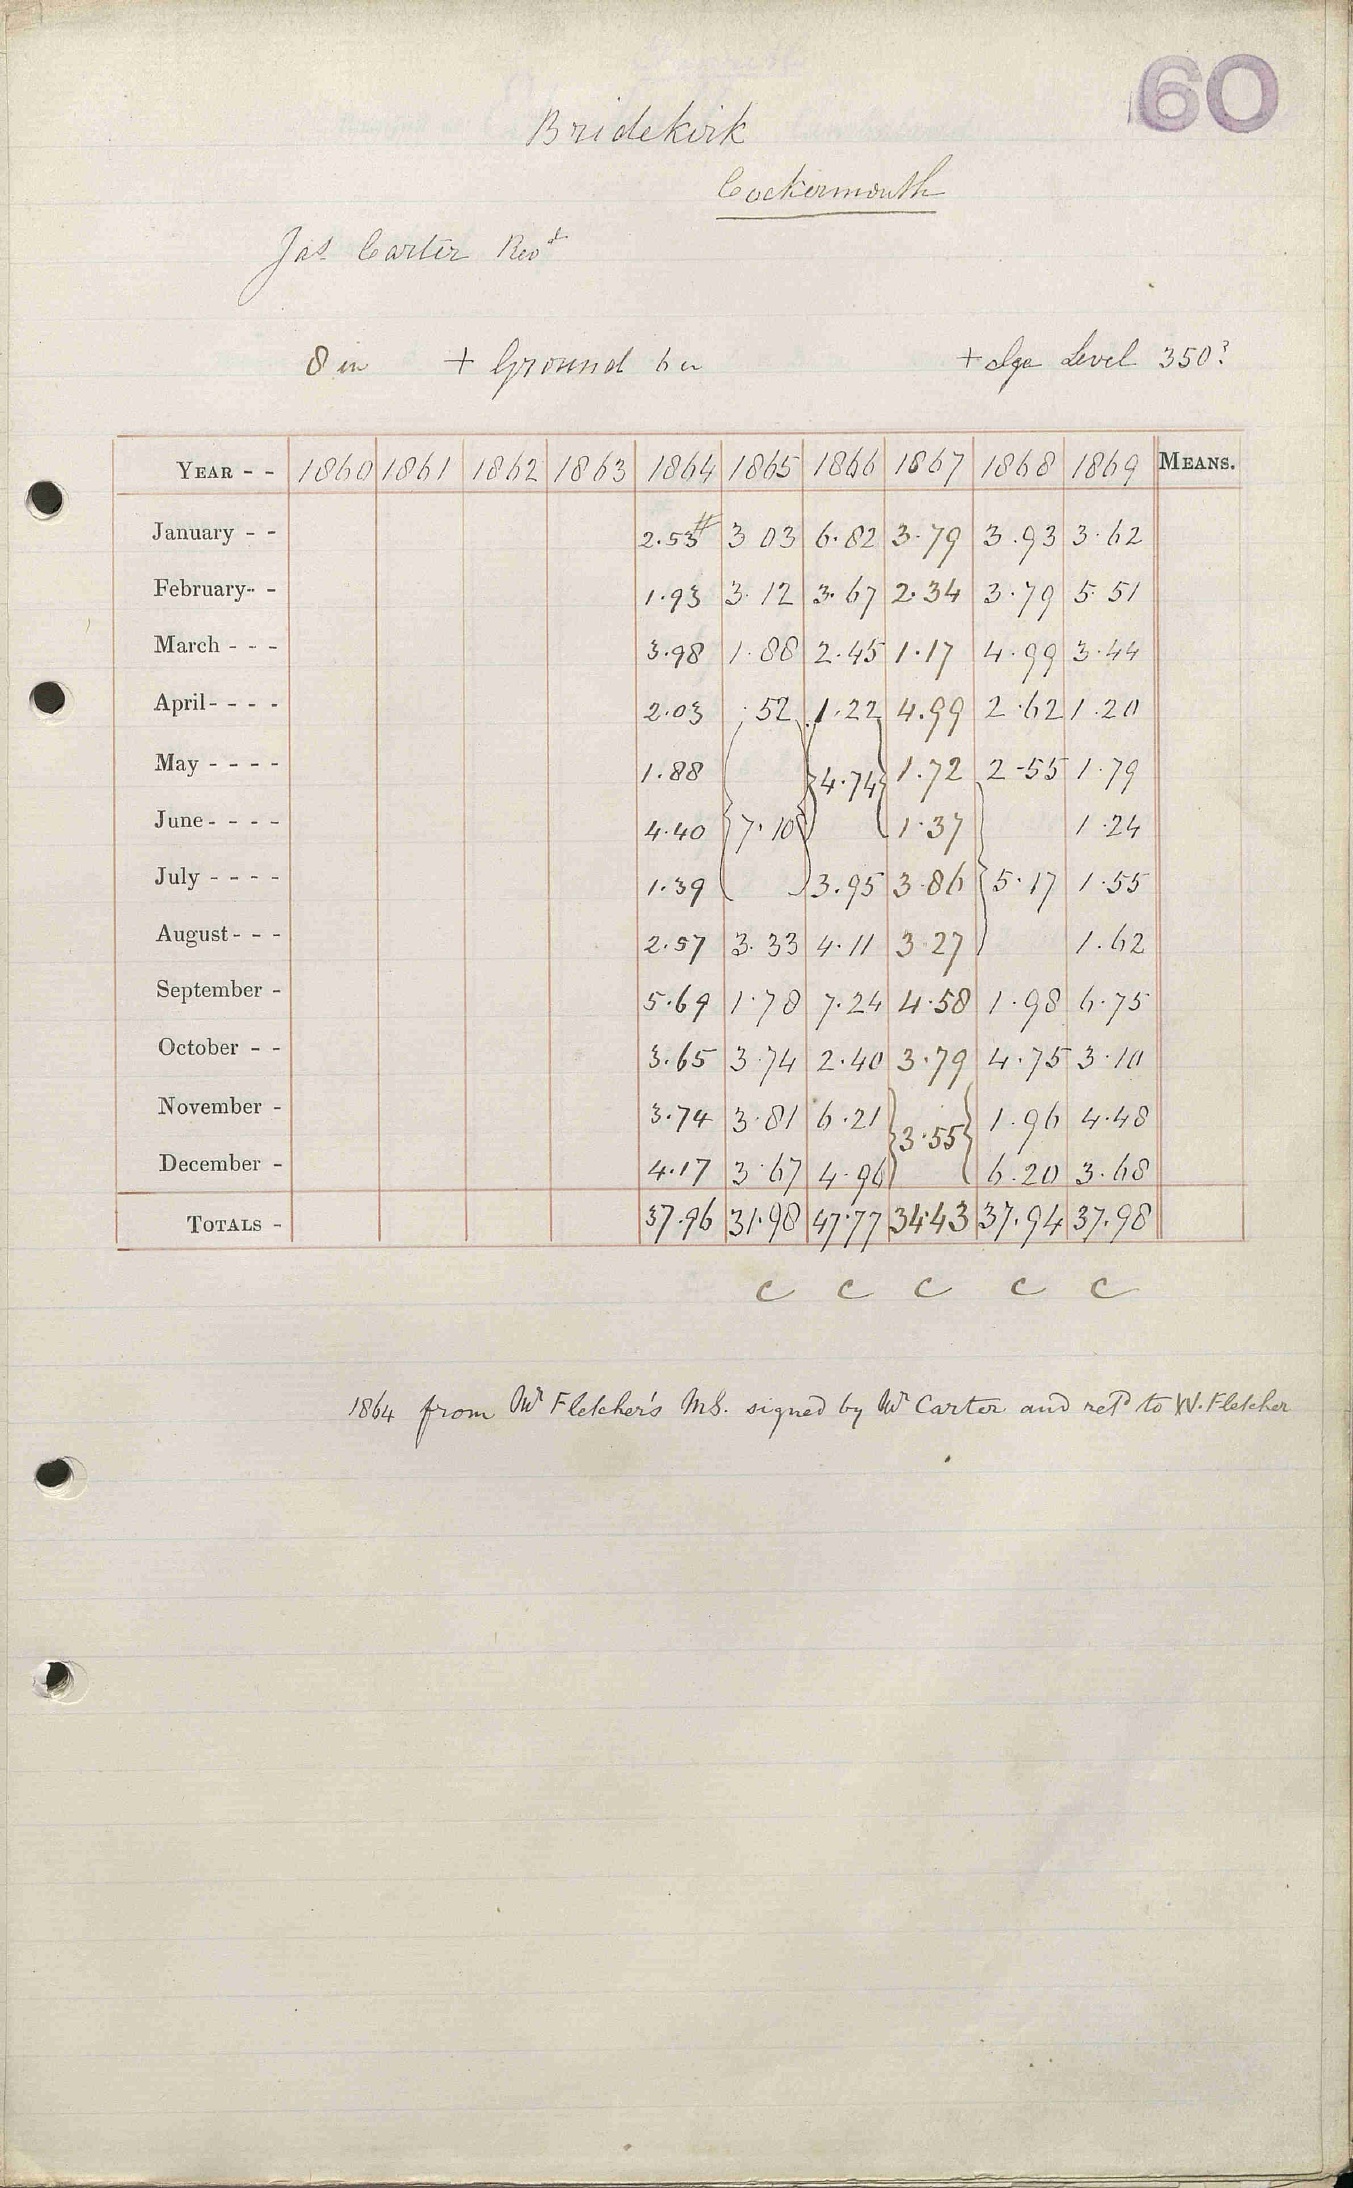 60
Bridekirk
Cockermouth
Jas Carter Revd
8 in + Ground 6 in + Sea Level 350?
YEAR - - 1860 1861 1862 1863 1864 1865 1866 1867 1868 1869 MEANS.
January - - 2.53# 3 03 6.82 3.79 3.93 3.62
February - - 1.93 3.12 3.67 2.34 3.79 5.51
March - - - 3.98 1.88 2.45 1.17 4.99 3.44
April - - - - 2.03 .52 1.22 4.99 2.62 1.20
May - - - - 1.88 4.74 1.72 2.55 1.79
June - - - - 4.40 7.10 1.37 1.24
July - - - - 1.39 3.95 3.86 5.17 1.55
August - - - 2.57 3.33 4.11 3.27 1.62
September - 5.69 1.78 7.24 4.58 1.98 6.75
October - - 3.65 3.74 2.40 3.79 4.75 3.10
November - 3.74 3.81 6.21 3.55 1.96 4.48
December - 4.17 3.67 4.96 6.20 3.68
TOTALS - 37.96 31.98 47.77 34.43 37.94 37.98
c c c c c
1864 from Mr Fletcher's MS. signed by Mr Carter and retd to W. Fletcher